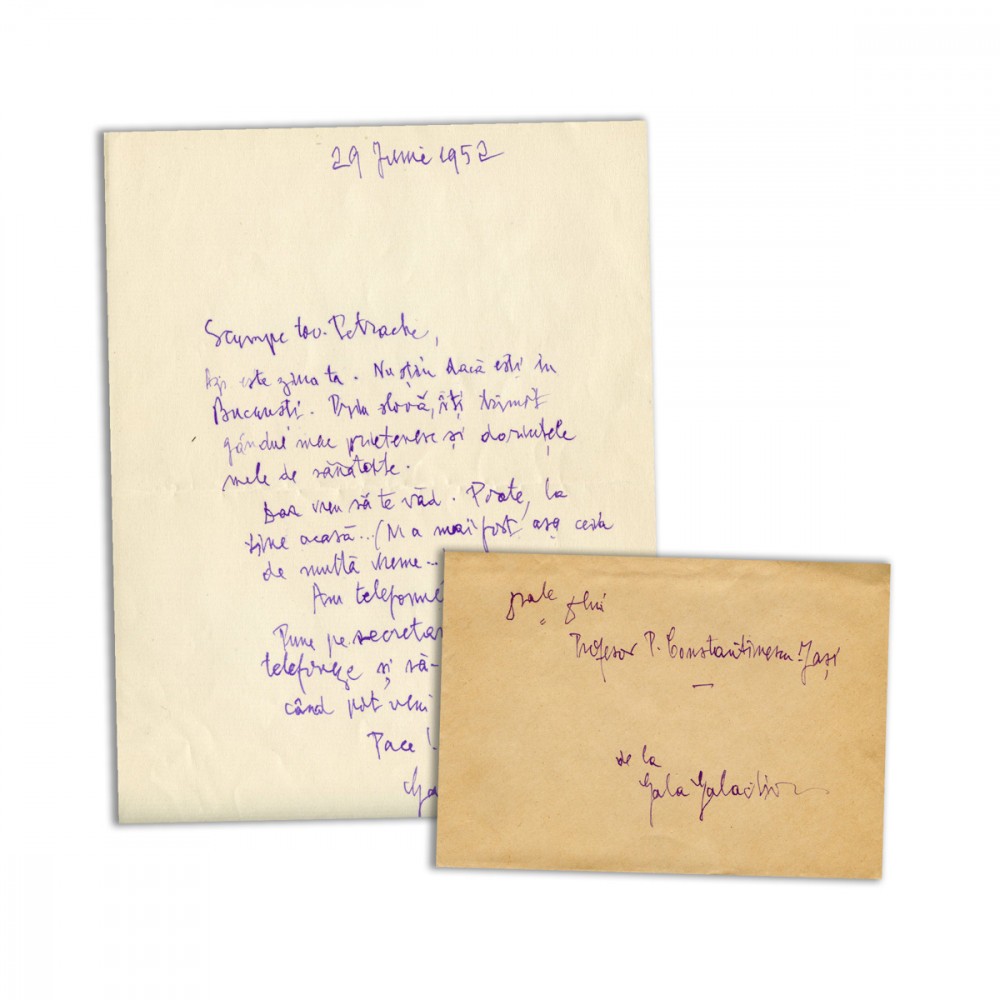 29 Iunie 1952
Scumpe tov. Petrache,
Azi este ziua ta. Nu știu dacă ești în
București. slovă, îți trimit
gândul meu prietenesc și dorințele
mele de sănătate.
vreu să te văd. Poate, la
tine acasă... (N'a mai fost așa ceva
de multă vreme...
Am telefon
Pune pe secretar
telefoneze și să-
când pot veni
Pace!
Ga
D-sale D-lui
Profesor P. Constantinescu-Iași
de la
Gala Galaction